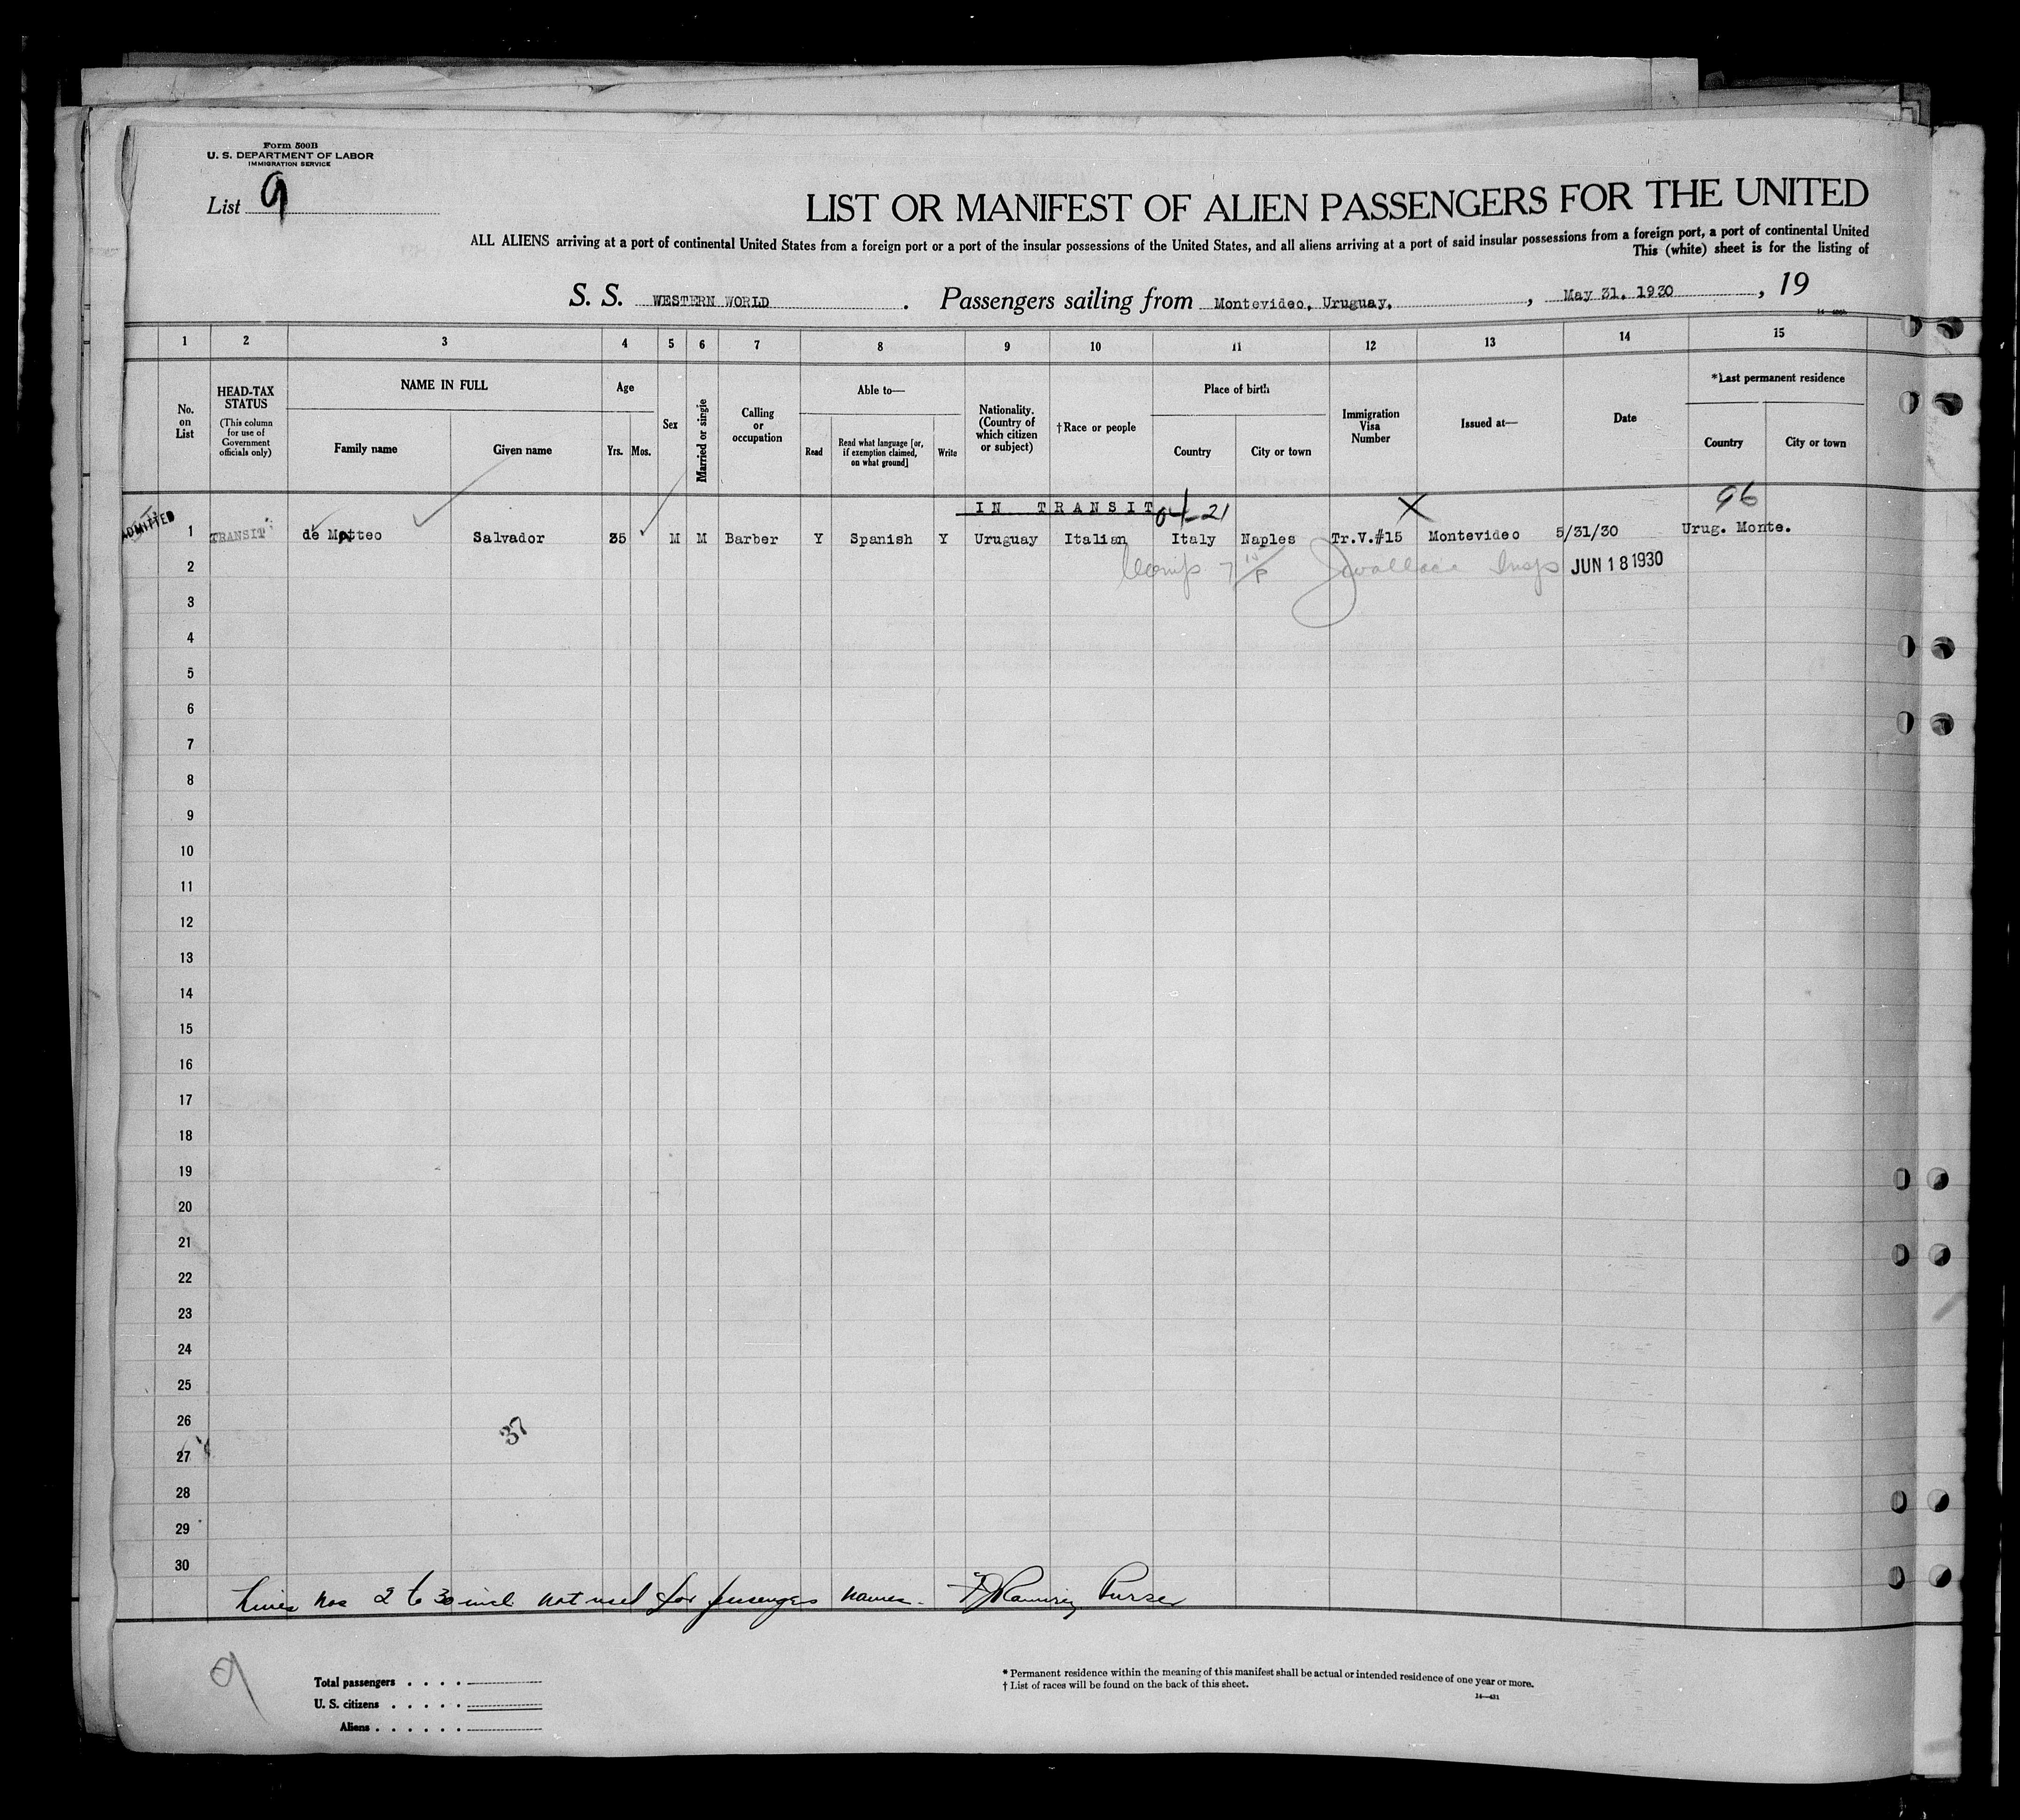 Form 500B
U. S. DEPARTMENT OF LABOR
IMMIGRATION SERVICE
List 9
LIST OR MANIFEST OF ALIEN PASSENGERS FOR THE UNITED
ALL ALIENS arriving at a port of continental United States from a foreign port or a port of the insular possessions of the United States, and all aliens arriving at a port of said insular possessions from a foreign port, a port of continental United
This (white) sheet is for the listing of
S. S. WESTERN WORLD . Passengers sailing from Montevideo, Uruguay, , May 31, 1930 , 19
1 2 3 4 5 6 7 8 9 10 11 12 13 14 15
No. on List
HEAD-TAX STATUS
(This column for use of Government officials only)
NAME IN FULL
Family name Given name
Age
Yrs. Mos.
Sex
Married or single
Calling or occupation
Able to—
Read Read what language [or, if exemption claimed, on what ground] Write
Nationality. (Country of which citizen or subject)
†Race or people
Place of birth
Country City or town
Immigration Visa Number
Issued at—
Date
*Last permanent residence
Country City or town
IN TRANSIT 04-21 X 96
ADMITTED 1 TRANSIT de Matteo Salvador 35 M M Barber Y Spanish Y Uruguay Italian Italy Naples Tr.V.#15 Montevideo 5/31/30 Urug. Monte.
2 Insp JUN 18 1930
3
4
5
6
7
8
9
10
11
12
13
14
15
16
17
18
19
20
21
22
23
24
25
26
37
27
28
29
30
Lines nos 2 to 30 incl. not used for passengers names. Purser
9
Total passengers
U. S. citizens
Aliens
* Permanent residence within the meaning of this manifest shall be actual or intended residence of one year or more.
† List of races will be found on the back of this sheet.
14—431